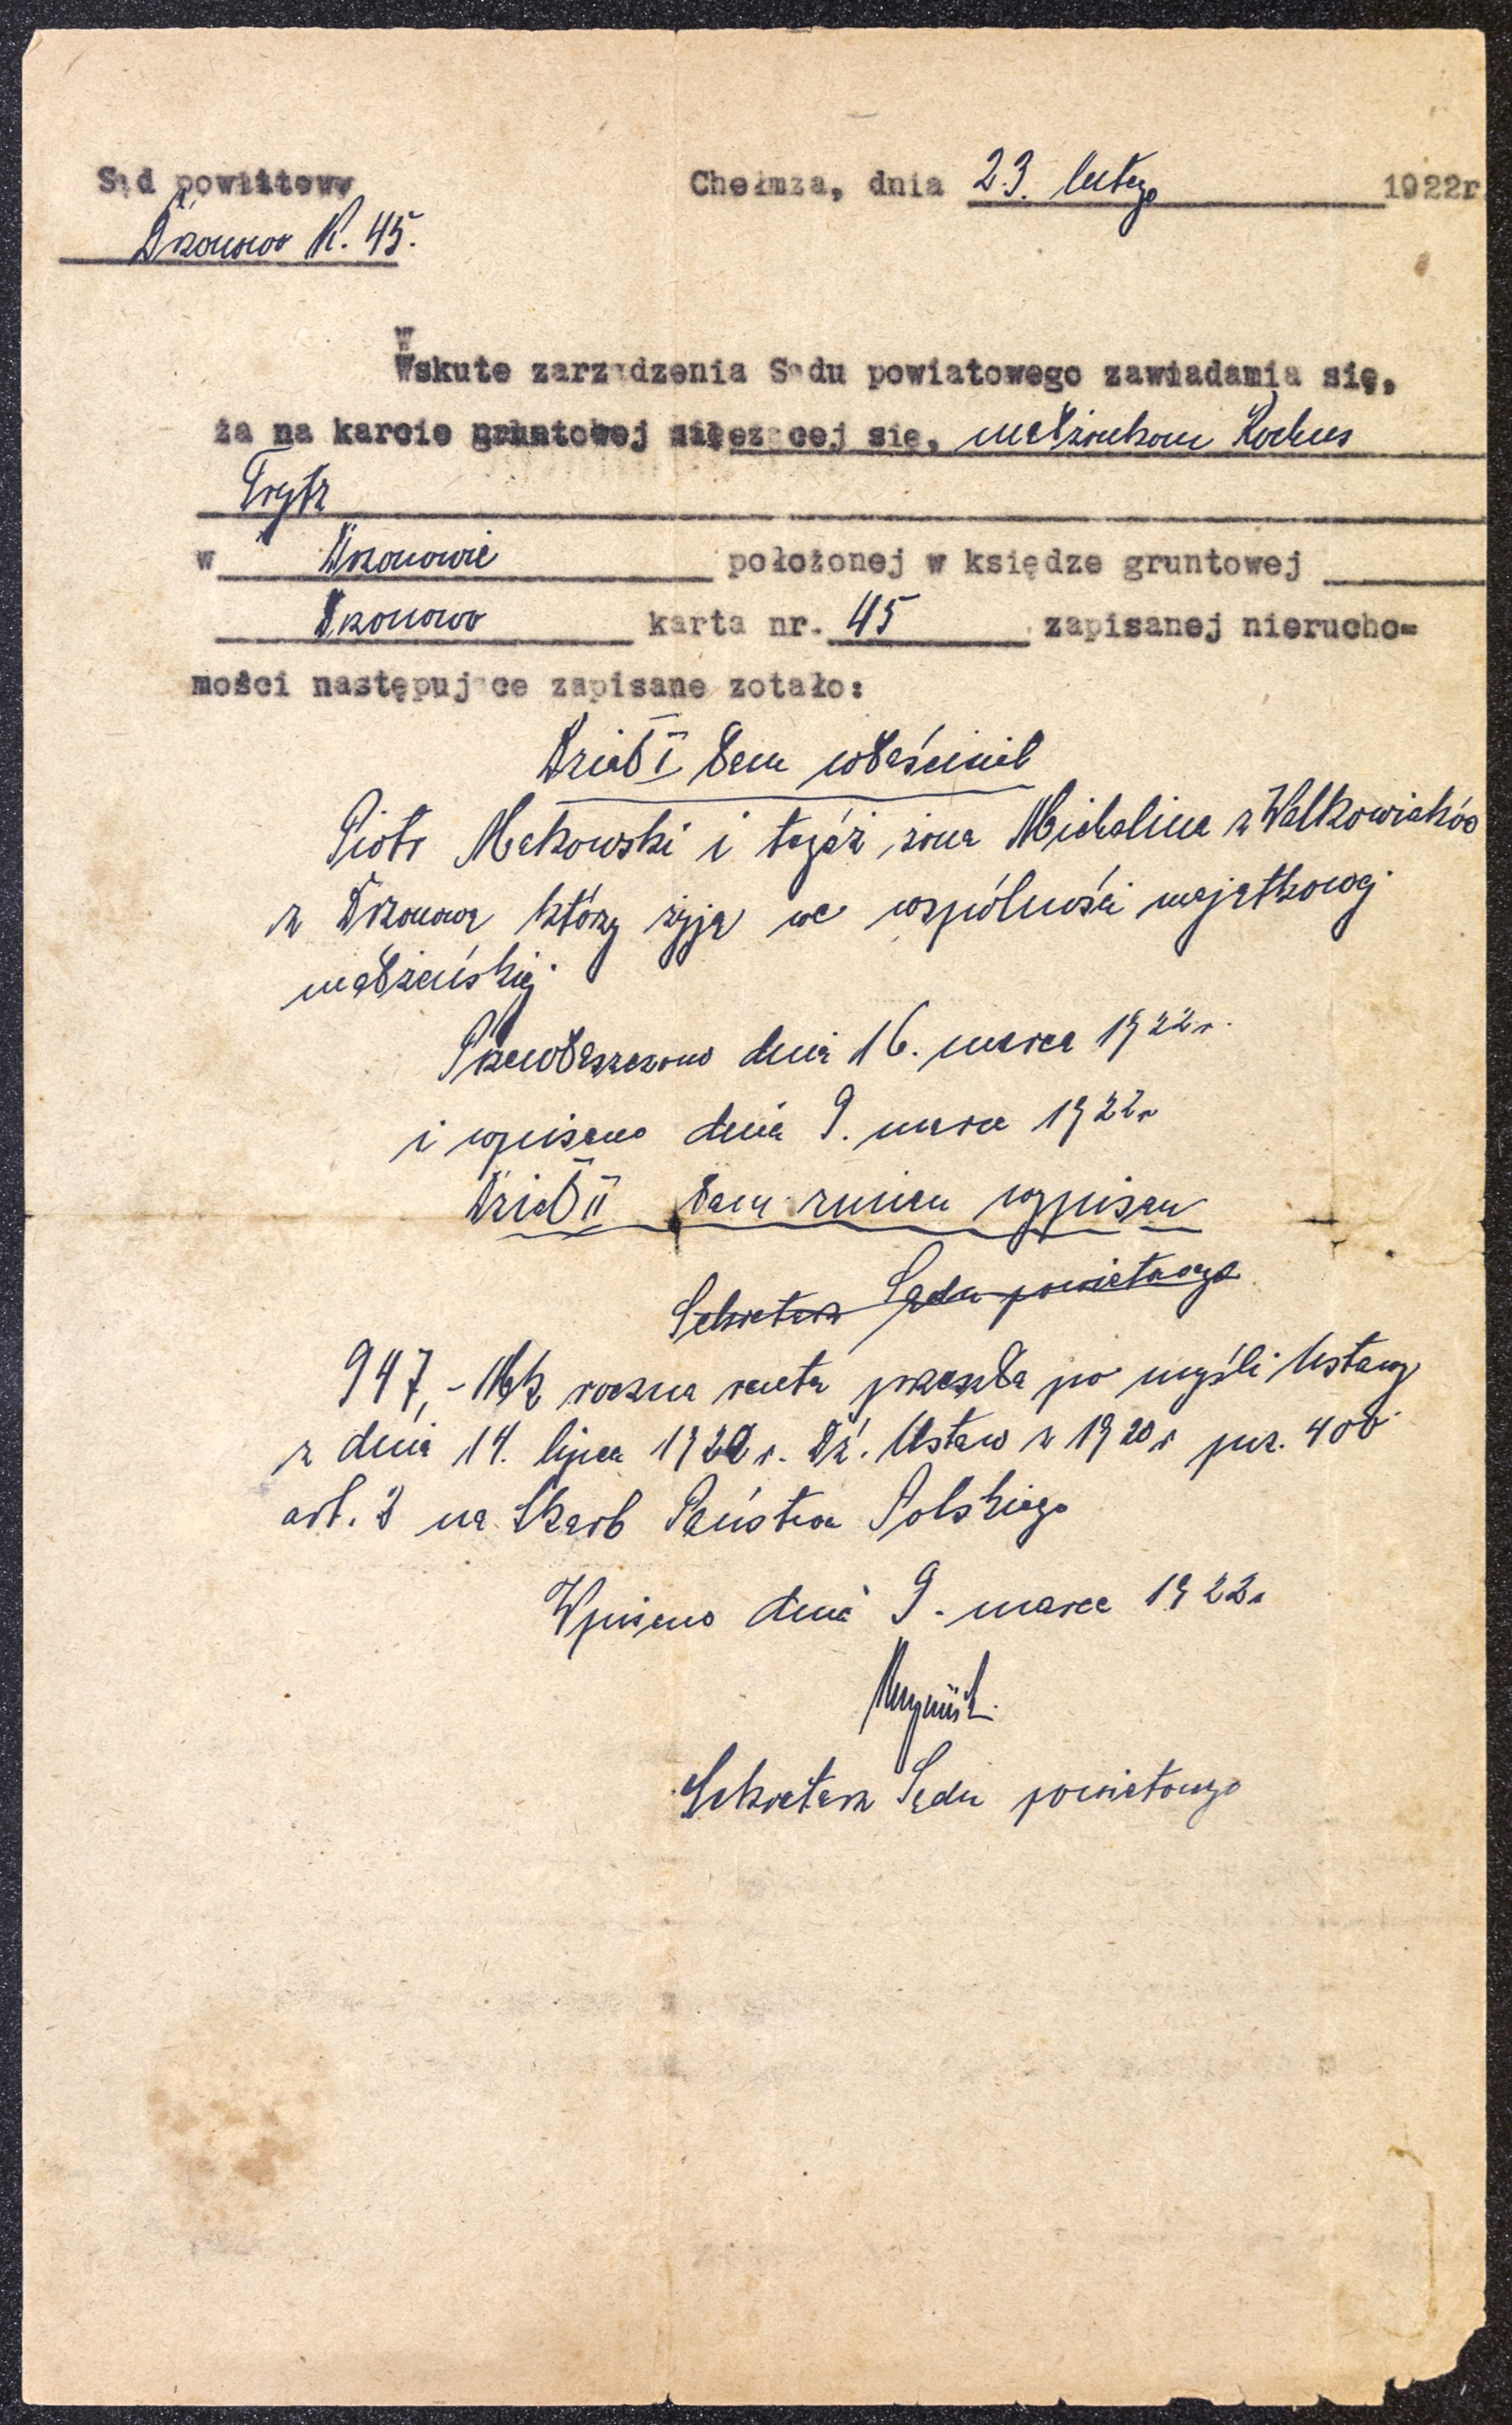 Sąd powiatowy
Chełmza, dnia 23. lutego 1922r
Drzonowo K. 45.
W
Wskute zarządzenia Sądu powiatowego zawiadamia się,
ża na karcie gruntowej należącej się, małżonkom Rochus
Frytz
w Drzonowie położonej w księdze gruntowej
Drzonowo karta nr. 45 zapisanej nierucho=
mości następujące zapisane zotało:
Dział I łam właściciel
Piotr Makowski i tegóż żona Michalina z Walkowiaków
z Drzonowa którzy żyją we wspólności majątkowej
małżeńskiej.
Przewłaszczono dnia 16. marca 1922r.
i wpisano dnia 9. marca 1922r
Dział II łam zmian wpisan
Sekretarz Sądu powiatowego
947,- Mk roczna renta przeszła po myśli Ustawy
z dnia 14. lipca 1920 r. Dź. Ustaw z 1920 r poz. 400
art. 2 na Skarb Państwa Polskiego
Wpisano dnia 9. marca 1922r
Sekretarz Sądu powiatowego